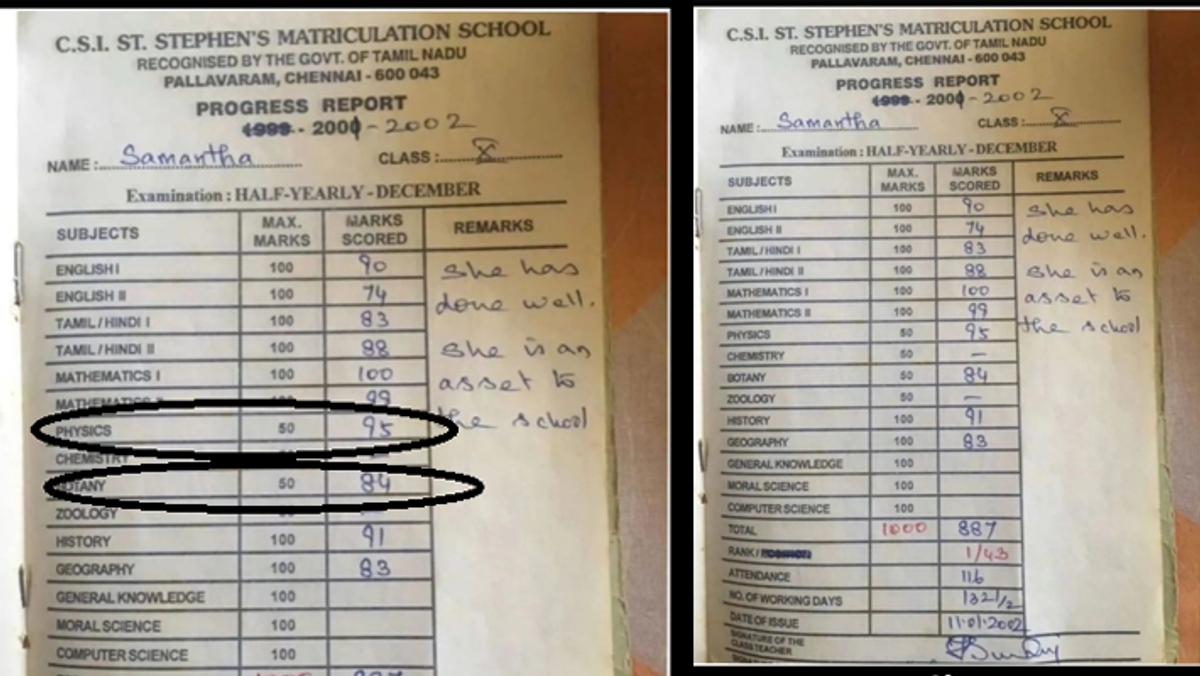 C.S.I. ST. STEPHEN'S MATRICULATION SCHOOL
RECOGNISED BY THE GOVT. OF TAMIL NADU
PALLAVARAM, CHENNAI - 600 043
PROGRESS REPORT
1999 - 2001 - 2002
NAME : Samantha CLASS : X
Examination : HALF-YEARLY - DECEMBER
SUBJECTS MAX. MARKS MARKS SCORED REMARKS
ENGLISH I 100 90 She has
ENGLISH II 100 74 done well.
TAMIL / HINDI I 100 83
TAMIL / HINDI II 100 88 She is an
MATHEMATICS I 100 100 asset to
MATHEMATICS II 100 99
PHYSICS 50 95 the school
CHEMISTRY —
BOTANY 50 84
ZOOLOGY 50 —
HISTORY 100 91
GEOGRAPHY 100 83
GENERAL KNOWLEDGE 100
MORAL SCIENCE 100
COMPUTER SCIENCE 100
C.S.I. ST. STEPHEN'S MATRICULATION SCHOOL
RECOGNISED BY THE GOVT. OF TAMIL NADU
PALLAVARAM, CHENNAI - 600 043
PROGRESS REPORT
1999 - 2001 - 2002
NAME : Samantha CLASS : X
Examination : HALF-YEARLY - DECEMBER
SUBJECTS MAX. MARKS MARKS SCORED REMARKS
ENGLISH I 100 90 She has
ENGLISH II 100 74 done well.
TAMIL / HINDI I 100 83
TAMIL / HINDI II 100 88 She is an
MATHEMATICS I 100 100 asset to
MATHEMATICS II 100 99
PHYSICS 50 95 the school
CHEMISTRY 50 —
BOTANY 50 84
ZOOLOGY 50 —
HISTORY 100 91
GEOGRAPHY 100 83
GENERAL KNOWLEDGE 100
MORAL SCIENCE 100
COMPUTER SCIENCE 100
TOTAL 1000 887
RANK / 1/43
ATTENDANCE 116
NO. OF WORKING DAYS 132 1/2
DATE OF ISSUE 11.01.2002
SIGNATURE OF THE
CLASS TEACHER